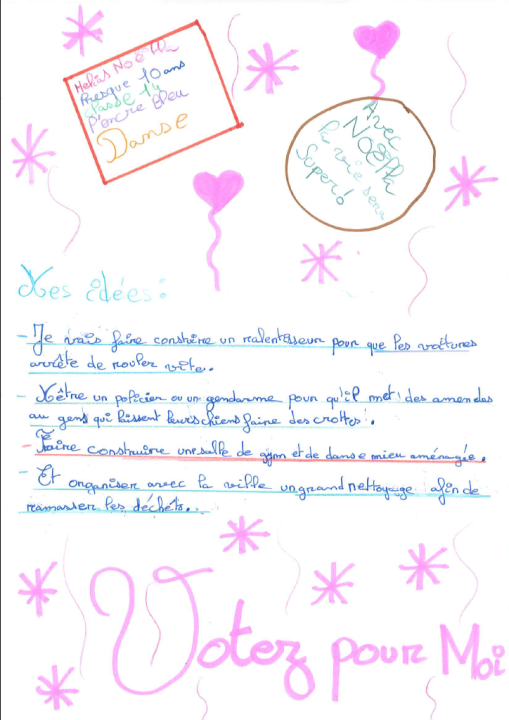 Helias Noëlla
Presque 10 ans
Classe 14
D'encre Bleu
Danse
Avec
Noëlla
la vie sera
Super!
Mes idées:
- Je vais faire construire un ralentisseur pour que les voitures
arrête de rouler vite.
- Mêtre un policier ou un gendarme pour qu'il met des amendes
au gens qui laissent leurs chiens faire des crottes.
- Faire construire une salle de gym et de danse mieu aménagée.
- Et organiser avec la ville un grand nettoyage afin de
ramasser les déchéts.
Votez pour Moi